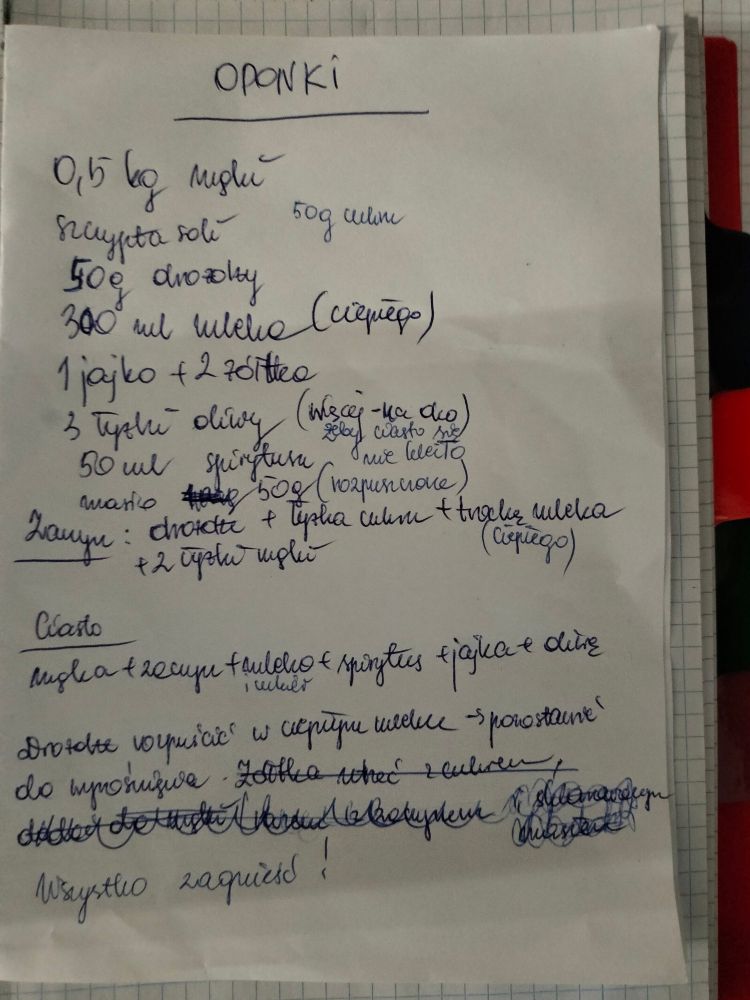 OPONKI
0,5 kg mąki
szczypta soli 50g cukru
50g drożdży
300 ml mleka (ciepłego)
1 jajko + 2 żółtka
3 łyżki oliwy (więcej - na oko)
żeby ciasto się
50 ml spirytusu nie kleiło
masło 50g (rozpuszczone)
Zaczyn: drożdże + łyżka cukru + trochę mleka
+ 2 łyżki mąki (ciepłego)
Ciasto
mąka + zaczyn + mleko + spirytus + jajka + oliwę
i cukier
Drożdże rozpuścić w ciepłym mleku → pozostawić
do wyrośnięcia. Żółtka utrzeć z cukrem,
Wszystko zagnieść!